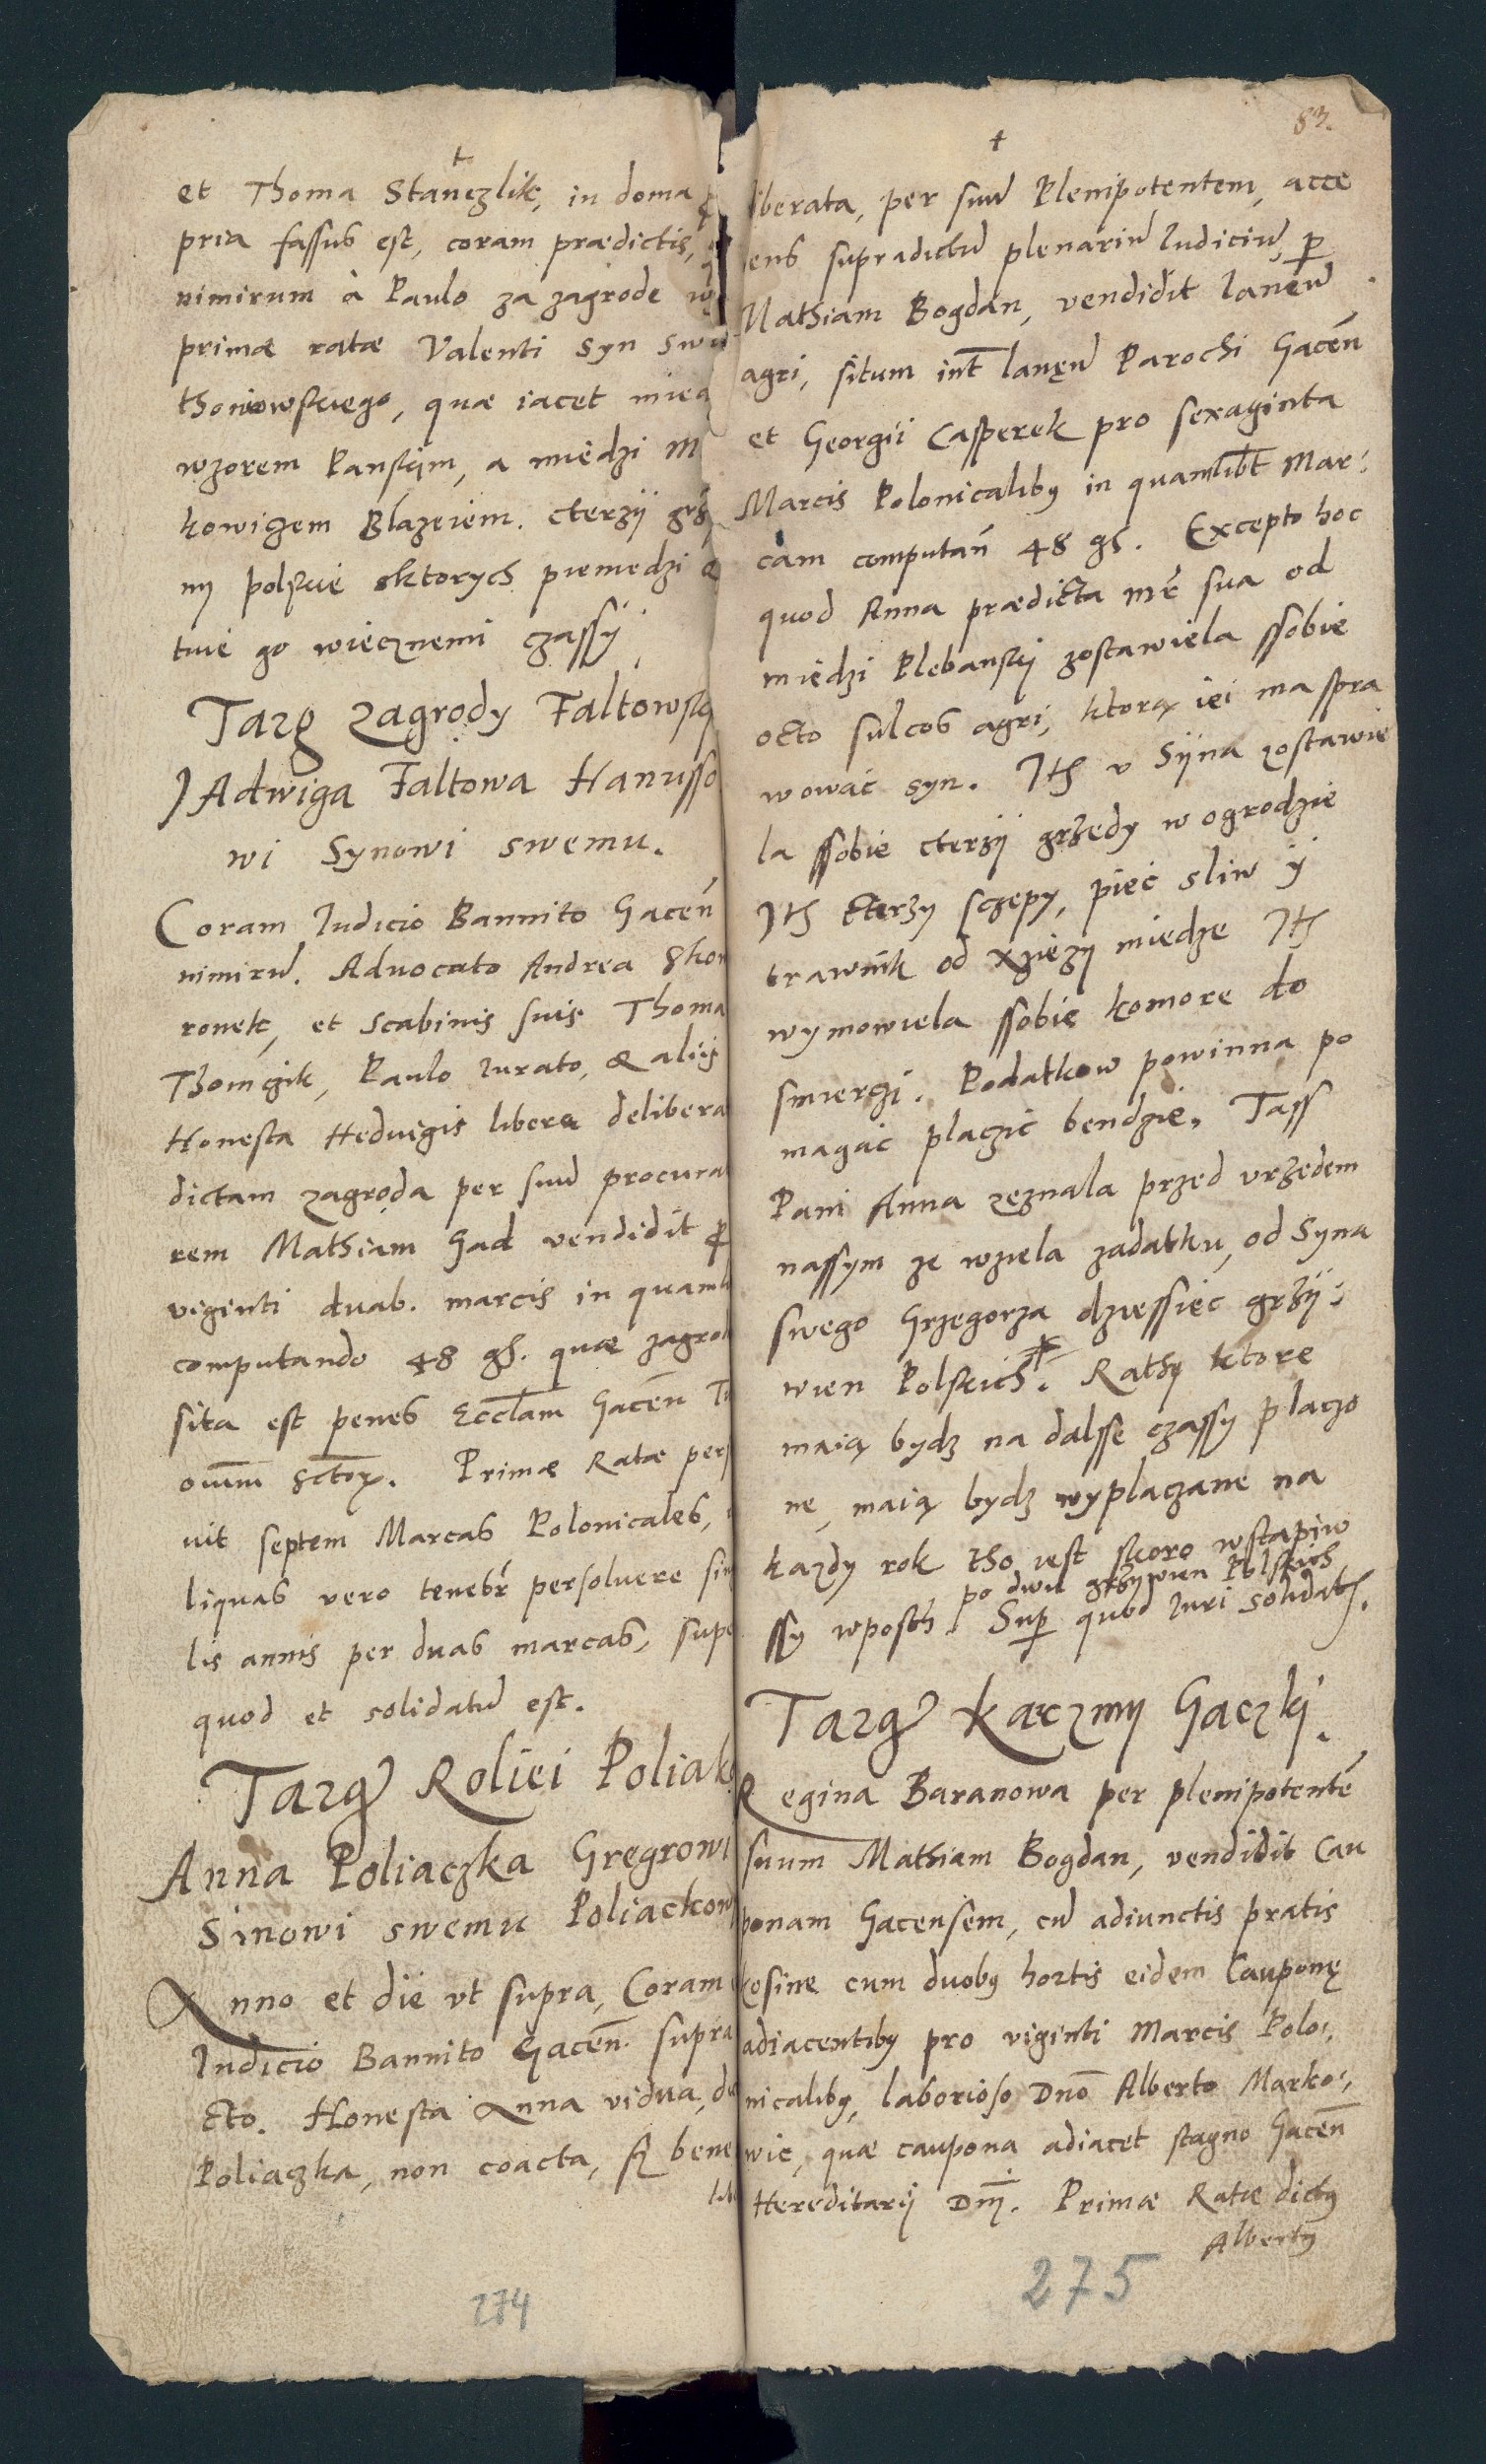 et Thoma Stanczlik, in doma
pria fassus est, coram prædictis,
nimirum à Paulo za zagrode
primæ ratæ Valenti Syn Swu
quæ iacet
wzorem Panskijm, a miedzi M
kowiczem Blazeiem. cterzÿ grz
nÿ polskie sktorych pieniedzi
tuie go wiecznemi czassÿ.
Targ Zagrody Faltowsk
JAdwiga Faltowa Hanusso
wi Synowi swemu.
Coram Iudicio Bannito Gaceñ
nimirũ. Advocato Andrea Skow
ronek, et Scabinis suis Thoma
Thomczik, Paulo Iurato, & aliis
Honesta Hedvigis libere delibera
dictam zagroda per suũ procura
rem Mathiam Gad vendidit
viginti duab. marcis in quaml
computando 48 gs. quæ zagrod
sita est penes Eccl̃am Gaceñ
oũim Sctor. Primæ Ratæ pers
uit septem Marcas Polonicales,
liquas vero tenebr̃ persoluere sin
lis annis per duas marcas, supe
quod et solidatũ est.
Targ Roliei Poliak
Anna Poliaczka Gregrowi
Sinowi swemu Poliackow
Anno et die vt supra, Coram
Iudicio Bannito Gaceñ. supra
cto. Honesta Anna vidua, d
Poliaczka, non coacta, sz bene
lib
274
83.
liberata, per suũ Plenipotentem, acce
ens supradictũ plenariũ Iudiciũ, p
Mathiam Bogdan, vendidit laneũ
agri, situm int̃ lanęũ Parochi Gaceñ
et Georgii Casperek pro sexaginta
Marcis Polonicalibꝯ in quamlibt Mar:
cam computañ 48 gs. Excepto hoc
quod Anna prædicta mr̃ sua od
miedzi Plebanskÿ zostawiela ssobie
octo sulcos agri, ktorą iei ma spra
wowac syn. Its v Sÿna zostawie
la ssobie cterzÿ grzedy w ogrodzie
Its cterzy sczepy, piec sliw ÿ
trawnik od xziezÿ miedze Its
wymowiela ssobie komore do
smierzi. Podatkow powinna po
magac placzic bendzie. Tass
Pani Anna zeznala przed vrzedem
nassym ze wziela zadatku, od Syna
swego Grzegorza dziessiec grzÿ:
wien Polskich. Rathÿ ktore
maią bydz na dalsse czassÿ placzo
ne, maią bydz wyplaczane na
kazdy rok tho iest skoro wstapiw
po dwu grzywien Polskich
ssy wposth. Sup quod Iuri solidats.
Targ Karczmÿ Gaczkj.
Regina Baranowa per plenipotentẽ
suum Mathiam Bogdan, vendidit Cau
ponam Gacensem, cũ adiunctis pratis
kosine cum duobꝯ hortis eidem Cauponę
adiacentibꝯ pro viginti Marcis Polo:
nicalibꝯ, laborioso Dño Alberto Marko:
wic, quæ caupona adiacet stagno Gaceñ
Hereditarij Dñi. Primæ Ratæ dictꝯ
Albertꝯ
275